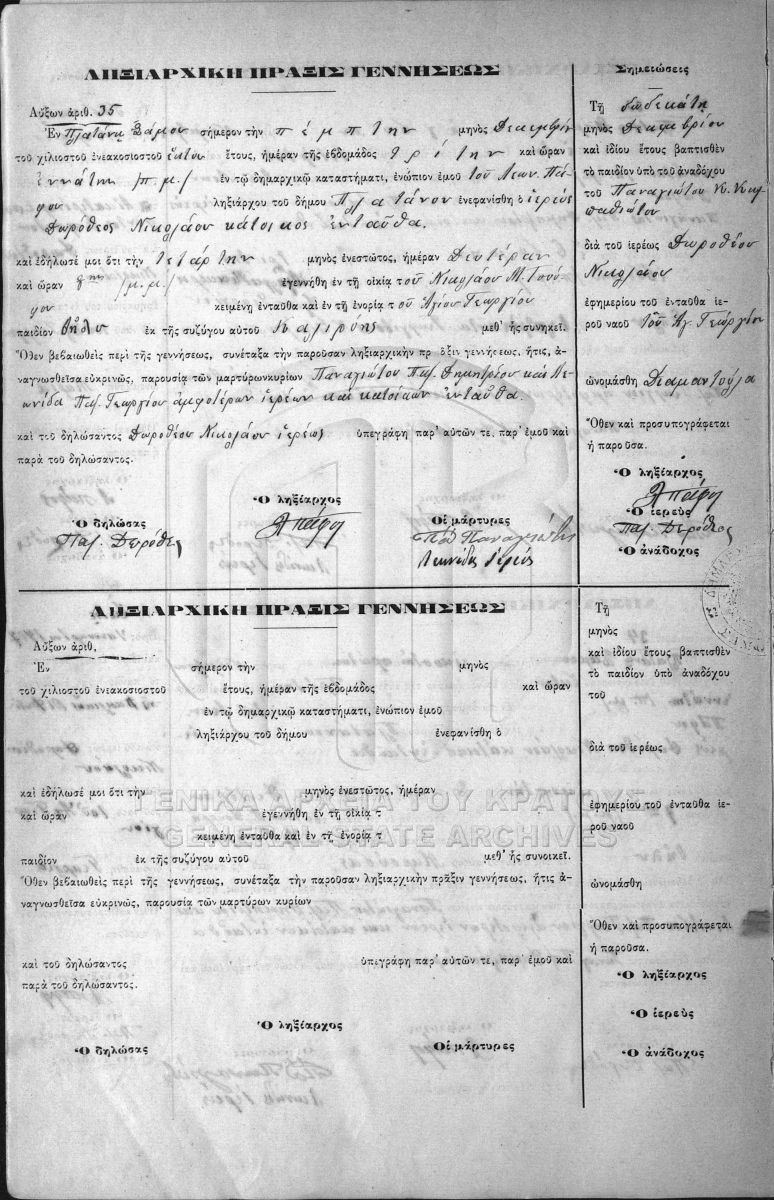 ΛΗΞΙΑΡΧΙΚΗ ΠΡΑΞΙΣ ΓΕΝΝΗΣΕΩΣ
Αὔξων ἀριθ. 35
Ἐν Πλατάνῳ σήμερον τὴν πέμπτην μηνὸς Δεκεμβρίου
τοῦ χιλιοστοῦ ἐνεακοσιοστοῦ ἕκτου ἔτους, ἡμέραν τῆς ἑβδομάδος Τρίτην καὶ ὥραν
ἐννάτην π.μ. ἐν τῷ δημαρχικῷ καταστήματι, ἐνώπιον ἐμοῦ τοῦ Λεων. Πά-
φου ληξιάρχου τοῦ δήμου Πλατάνου ἐνεφανίσθη ὁ ἱερεὺς
Δωρόθεος Νικολάου κάτοικος ἐνταῦθα.
καὶ ἐδήλωσέ μοι ὅτι τὴν τετάρτην μηνὸς ἐνεστῶτος, ἡμέραν Δευτέραν
καὶ ὥραν μ.μ. ἐγεννήθη ἐν τῇ οἰκίᾳ τοῦ Νικολάου Μ.
κειμένῃ ἐνταῦθα καὶ ἐν τῇ ἐνορίᾳ τοῦ Ἁγίου Γεωργίου
παιδίον θῆλυ ἐκ τῆς συζύγου αὐτοῦ Καλιρόης μεθ᾽ ἧς συνῃκεῖ.
Ὅθεν βεβαιωθεὶς περὶ τῆς γεννήσεως, συνέταξα τὴν παροῦσαν ληξιαρχικὴν πρᾶξιν γεννήσεως, ἥτις, ἀ-
ναγνωσθεῖσα εὐκρινῶς, παρουσίᾳ τῶν μαρτύρων κυρίων Παναγιώτου Παπ. Δημητρίου καὶ Λε-
ωνίδα Παπ. Γεωργίου ἀμφοτέρων ἱερέων καὶ κατοίκων ἐνταῦθα.
καὶ τοῦ δηλώσαντος Δωροθέου Νικολάου ἱερέως ὑπεγράφη παρ᾽ αὐτῶν τε, παρ᾽ ἐμοῦ καὶ
παρὰ τοῦ δηλώσαντος.
Ὁ ληξίαρχος
Λ Πάφης
Ὁ δηλώσας
Παπ. Δωρόθεος
Οἱ μάρτυρες
Παναγιώτης
Λεωνίδας Ἱερεύς
Σημειώσεις
Τῇ δωδεκάτῃ
μηνὸς Δεκεμβρίου
καὶ ἰδίου ἔτους βαπτισθὲν
τὸ παιδίον ὑπὸ τοῦ ἀναδόχου
τοῦ Παναγιώτου
διὰ τοῦ ἱερέως Δωροθέου
Νικολάου
ἐφημερίου τοῦ ἐνταῦθα ἱε-
ροῦ ναοῦ τοῦ Ἁγ. Γεωργίου
ὠνομάσθη Διαμαντούλα
Ὅθεν καὶ προσυπογράφεται
ἡ παροῦσα.
Ὁ ληξίαρχος
Λ Πάφης
Ὁ ἱερεὺς
Παπ. Δωρόθεος
Ὁ ἀνάδοχος
ΛΗΞΙΑΡΧΙΚΗ ΠΡΑΞΙΣ ΓΕΝΝΗΣΕΩΣ
Αὔξων ἀριθ.
Ἐν σήμερον τὴν μηνὸς
τοῦ χιλιοστοῦ ἐνεακοσιοστοῦ ἔτους, ἡμέραν τῆς ἑβδομάδος καὶ ὥραν
ἐν τῷ δημαρχικῷ καταστήματι, ἐνώπιον ἐμοῦ
ληξιάρχου τοῦ δήμου ἐνεφανίσθη ὁ
καὶ ἐδήλωσέ μοι ὅτι τὴν μηνὸς ἐνεστῶτος, ἡμέραν
καὶ ὥραν ἐγεννήθη ἐν τῇ οἰκίᾳ τ
κειμένῃ ἐνταῦθα καὶ ἐν τῇ ἐνορίᾳ τ
παιδίον ἐκ τῆς συζύγου αὐτοῦ μεθ᾽ ἧς συνοικεῖ.
Ὅθεν βεβαιωθεὶς περὶ τῆς γεννήσεως, συνέταξα τὴν παροῦσαν ληξιαρχικὴν πρᾶξιν γεννήσεως, ἥτις ἀ-
ναγνωσθεῖσα εὐκρινῶς, παρουσίᾳ τῶν μαρτύρων κυρίων
καὶ τοῦ δηλώσαντος ὑπεγράφη παρ᾽ αὐτῶν τε, παρ᾽ ἐμοῦ καὶ
παρὰ τοῦ δηλώσαντος.
Ὁ ληξίαρχος
Ὁ δηλώσας
Οἱ μάρτυρες
Τῇ
μηνὸς
καὶ ἰδίου ἔτους βαπτισθὲν
τὸ παιδίον ὑπὸ ἀναδόχου
τοῦ
διὰ τοῦ ἱερέως
ἐφημερίου τοῦ ἐνταῦθα ἱε-
ροῦ ναοῦ
ὠνομάσθη
Ὅθεν καὶ προσυπογράφεται
ἡ παροῦσα.
Ὁ ληξίαρχος
Ὁ ἱερεὺς
Ὁ ἀνάδοχος
ΓΕΝΙΚΑ ΑΡΧΕΙΑ ΤΟΥ ΚΡΑΤΟΥΣ
GENERAL STATE ARCHIVES